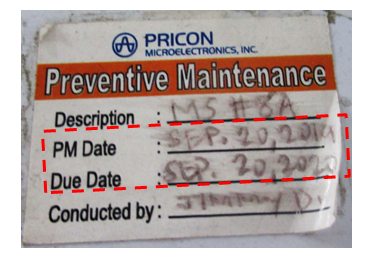 PRICON
MICROELECTRONICS, INC.
Preventive Maintenance
Description : MS # 8A
PM Date : SEP. 20, 2019
Due Date : SEP. 20, 2020
Conducted by : D.